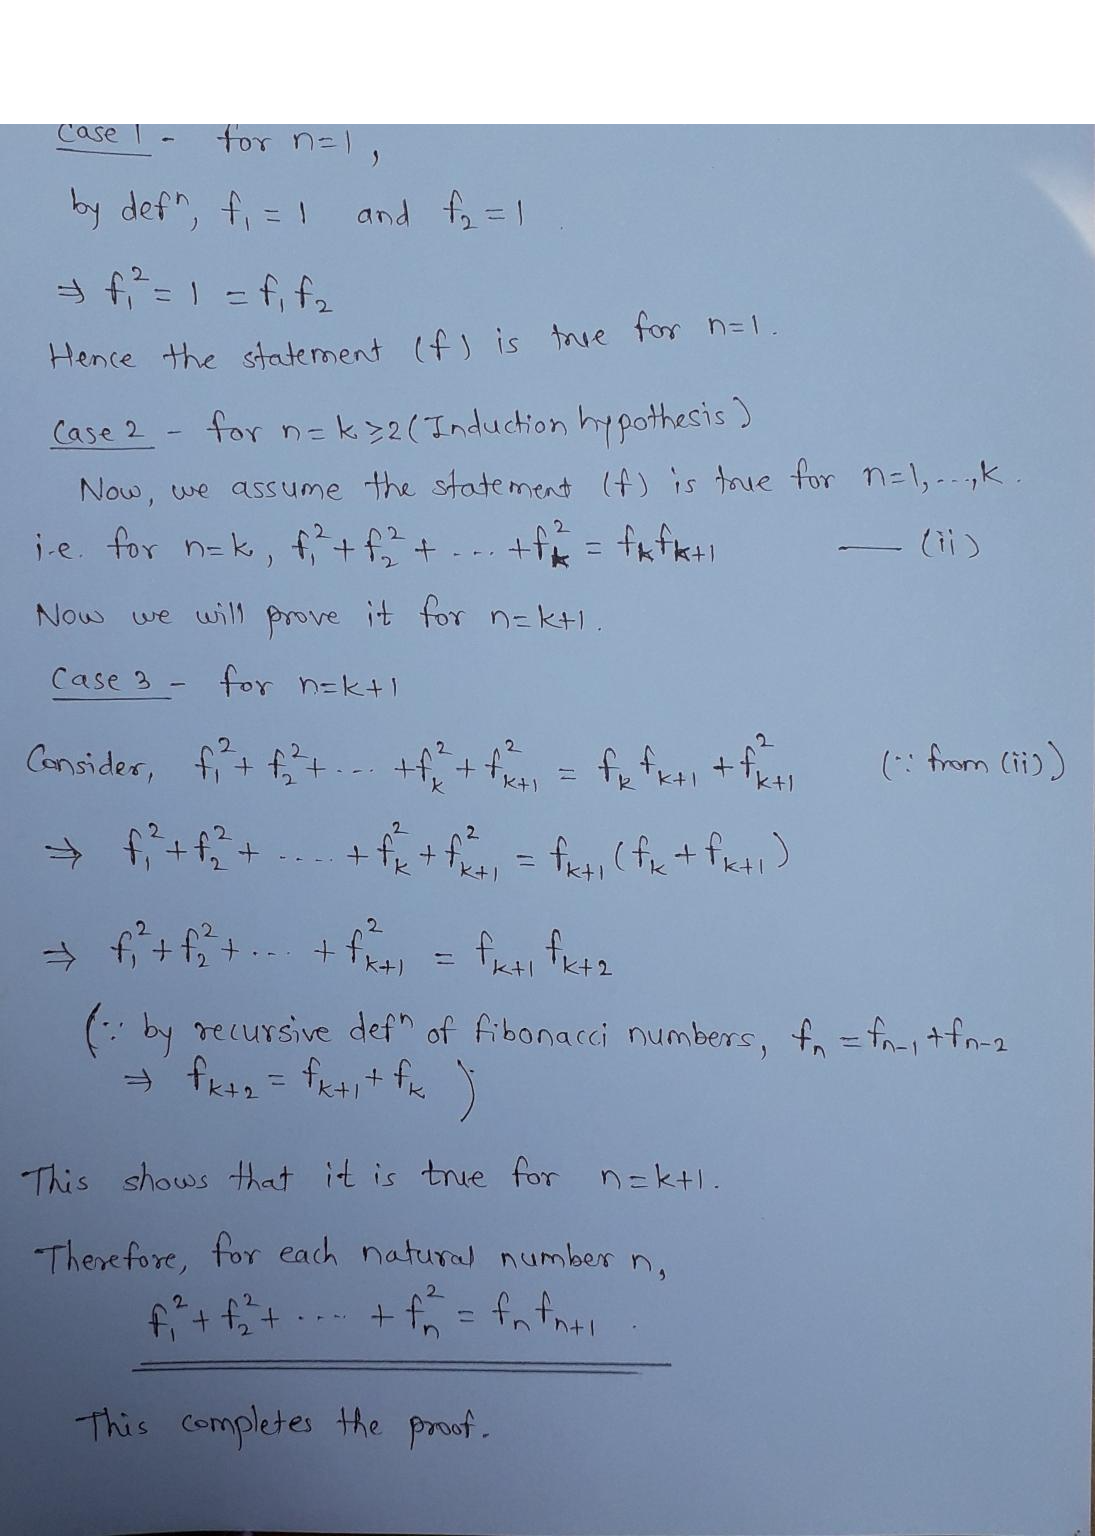 Case 1 - for n=1,
by defⁿ, f₁ = 1 and f₂ = 1.
⇒ f₁² = 1 = f₁ f₂
Hence the statement (f) is true for n=1.
Case 2 - for n=k≥2 (Induction hypothesis)
Now, we assume the statement (f) is true for n=1,...,k.
i.e. for n=k, f₁² + f₂² + ... + fₖ² = fₖfₖ₊₁ — (ii)
Now we will prove it for n=k+1.
Case 3 - for n=k+1
Consider, f₁² + f₂² + ... + fₖ² + fₖ₊₁² = fₖfₖ₊₁ + fₖ₊₁² (∵ from (ii))
⇒ f₁² + f₂² + ..... + fₖ² + fₖ₊₁² = fₖ₊₁ (fₖ + fₖ₊₁)
⇒ f₁² + f₂² + .... + fₖ₊₁² = fₖ₊₁ fₖ₊₂
(∵ by recursive defⁿ of fibonacci numbers, fₙ = fₙ₋₁ + fₙ₋₂
⇒ fₖ₊₂ = fₖ₊₁ + fₖ )
This shows that it is true for n=k+1.
Therefore, for each natural number n,
f₁² + f₂² + .... + fₙ² = fₙ fₙ₊₁ .
This completes the proof.